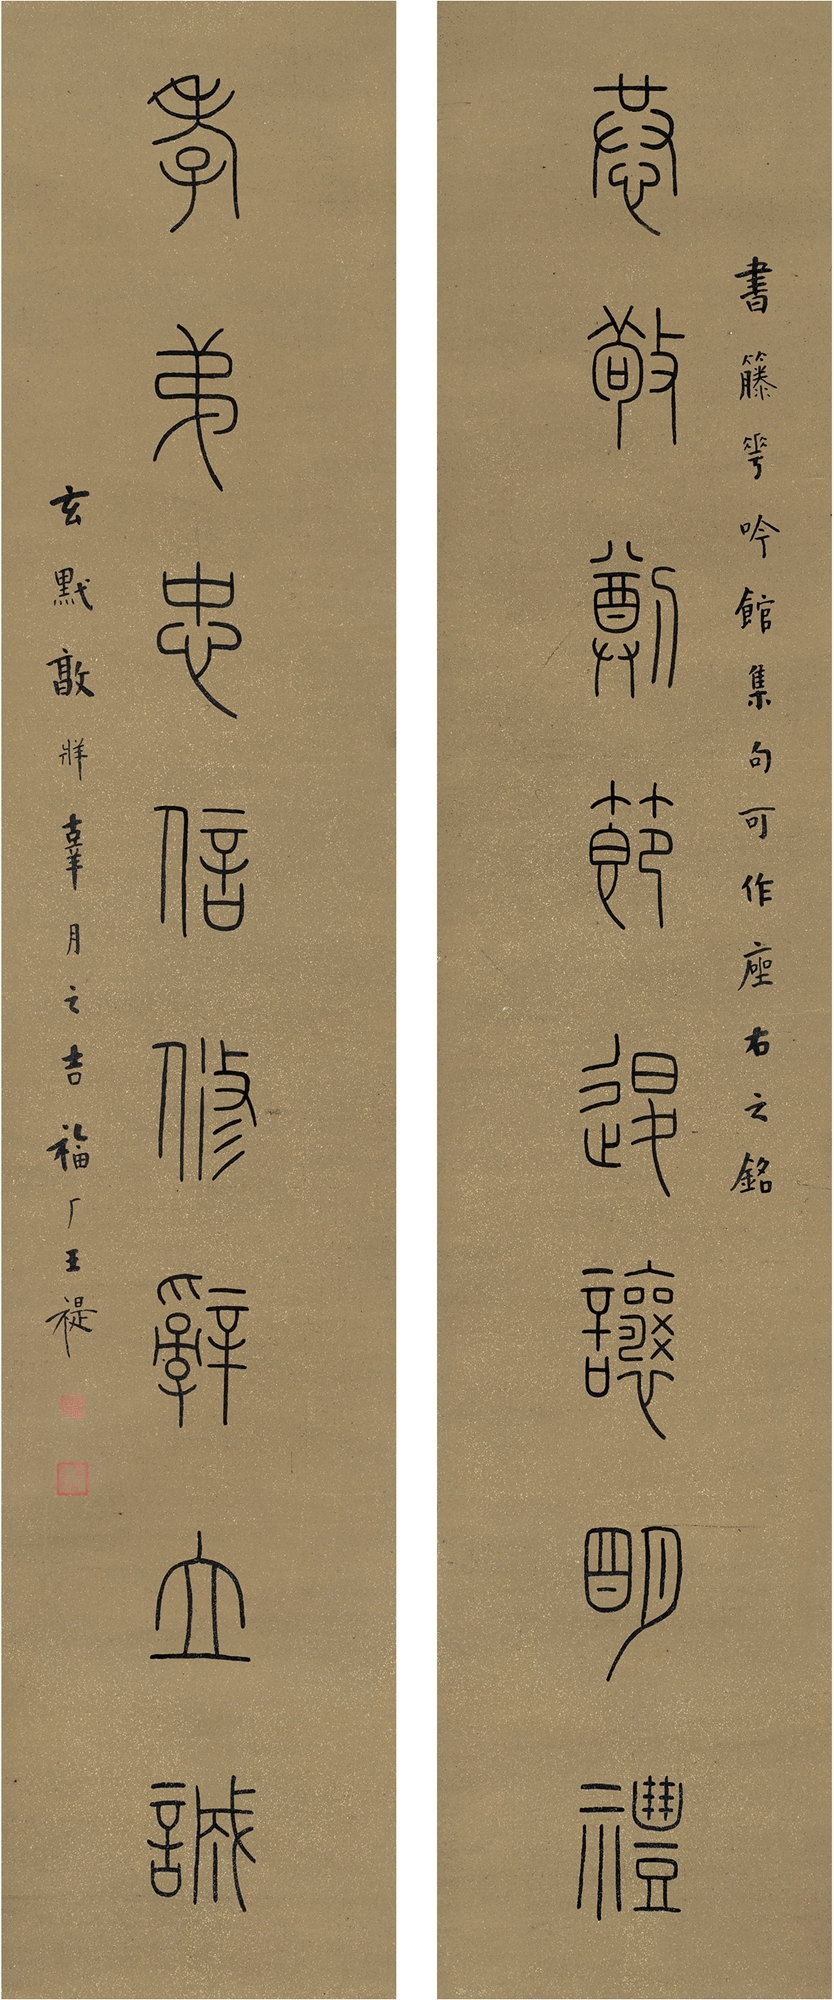 書籐花吟館集句可作座右之銘
恭敬撙節退讓明禮
孝弟忠信修辭立誠
玄黓敦牂辜月之吉福厂王禔